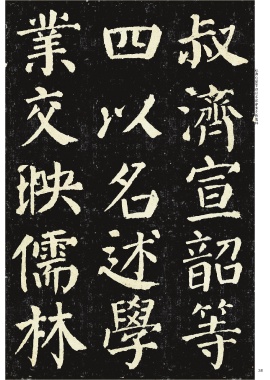 叔濟宣韶等
四以名述學
業交映儒林